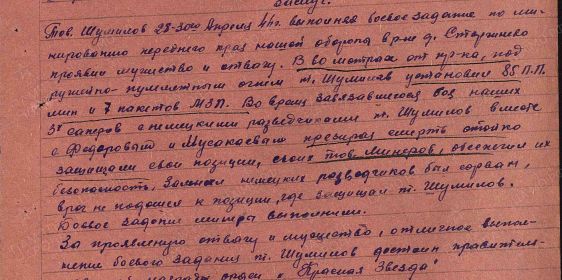 Тов. Шумилов 28-30го Апреля 44г. выполняя боевое задание по ми-
нированию переднего края нашей обороны в р-не д. Старонево
проявил мужество и отвагу. В 80 метрах от пр-ка, под
ружейно-пулеметным огнем т. Шумилов установил 85 П.П.
мин и 7 пакетов МЗП. Во время завязавшегося боя наших
3х сапёров с немецкими разведчиками т. Шумилов вместе
с Федоровым и Мусакаевым презирая смерть стойко
защищали свои позиции, своих тов. минеров, обеспечил их
безопасность. Замысел немецких разведчиков был сорван,
враг не подошел к позиции, где защищал т. Шумилов.
Боевое задание минеры выполнили.
За проявленную отвагу и мужество, отличное выпол-
нение боевого задания т. Шумилов достоин правитель-
награды орден "Красная Звезда"